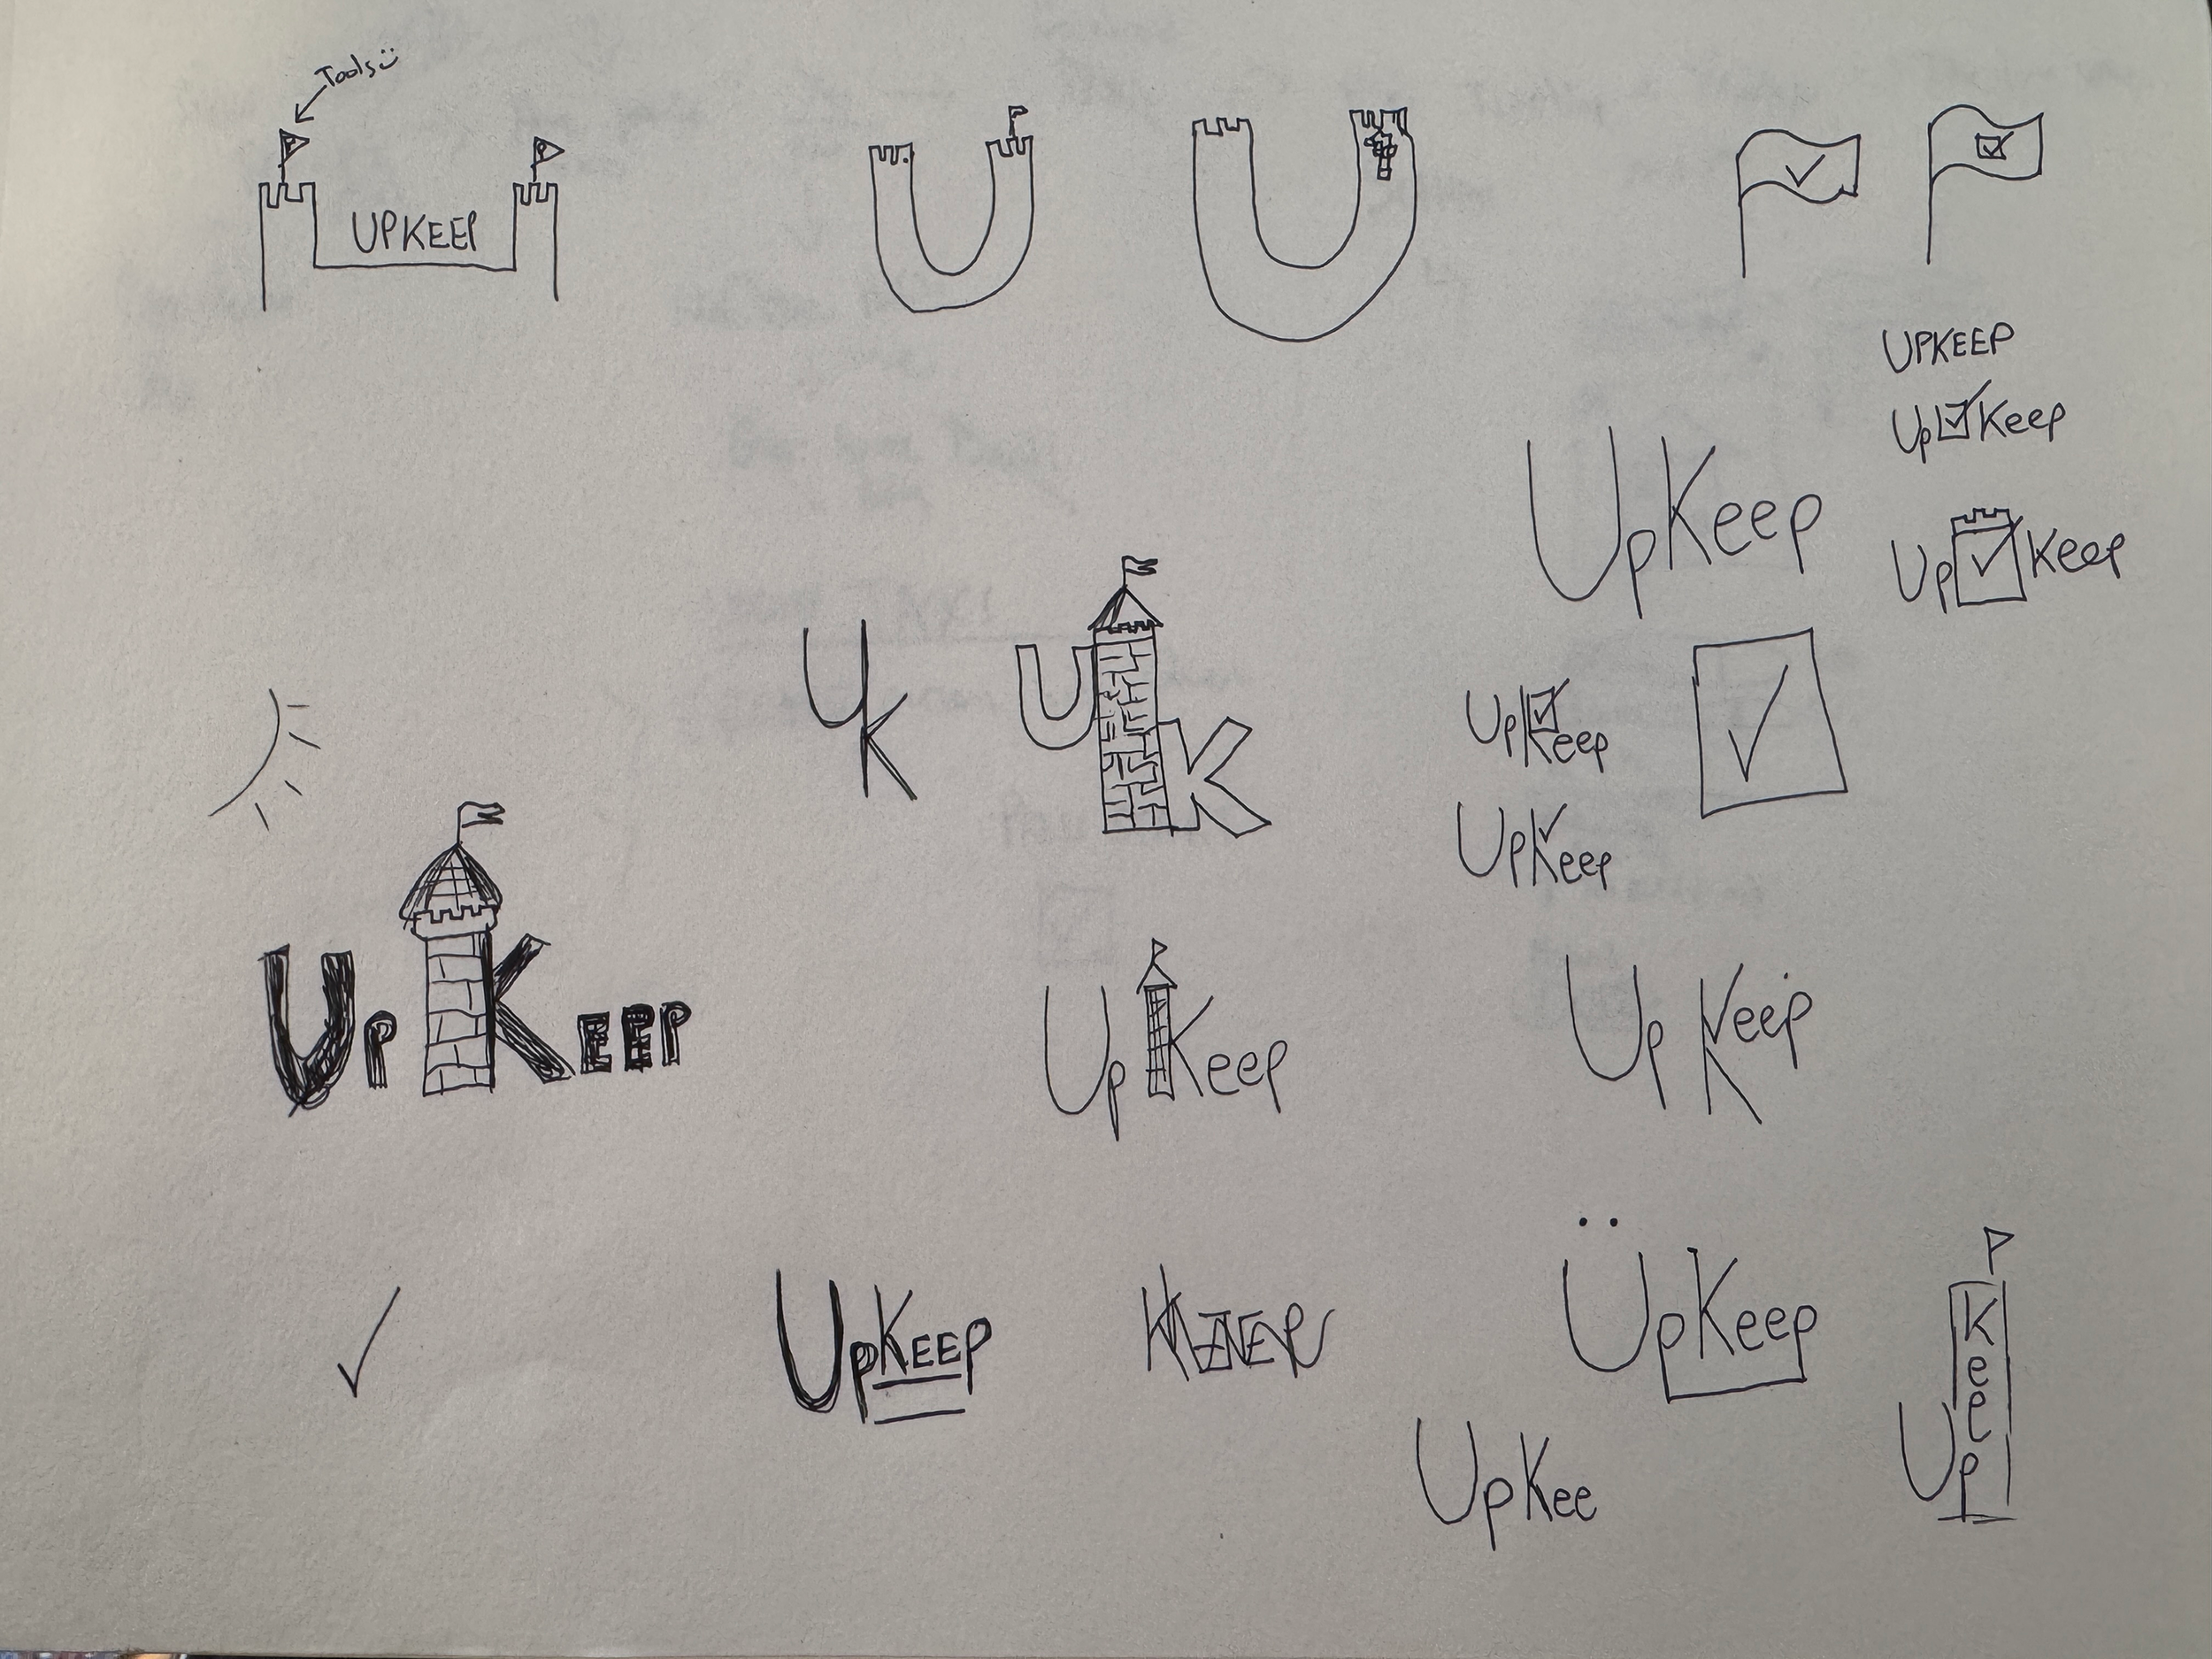 Tools
UPKEEP
UPKEEP
Up Keep
UpKeep
Up Keep
UK
UK
UpKeep
UpKeep
UP KEEP
Up Keep
Up Keep
UpKEEP
UpKeep
Keep
Up
UpKee